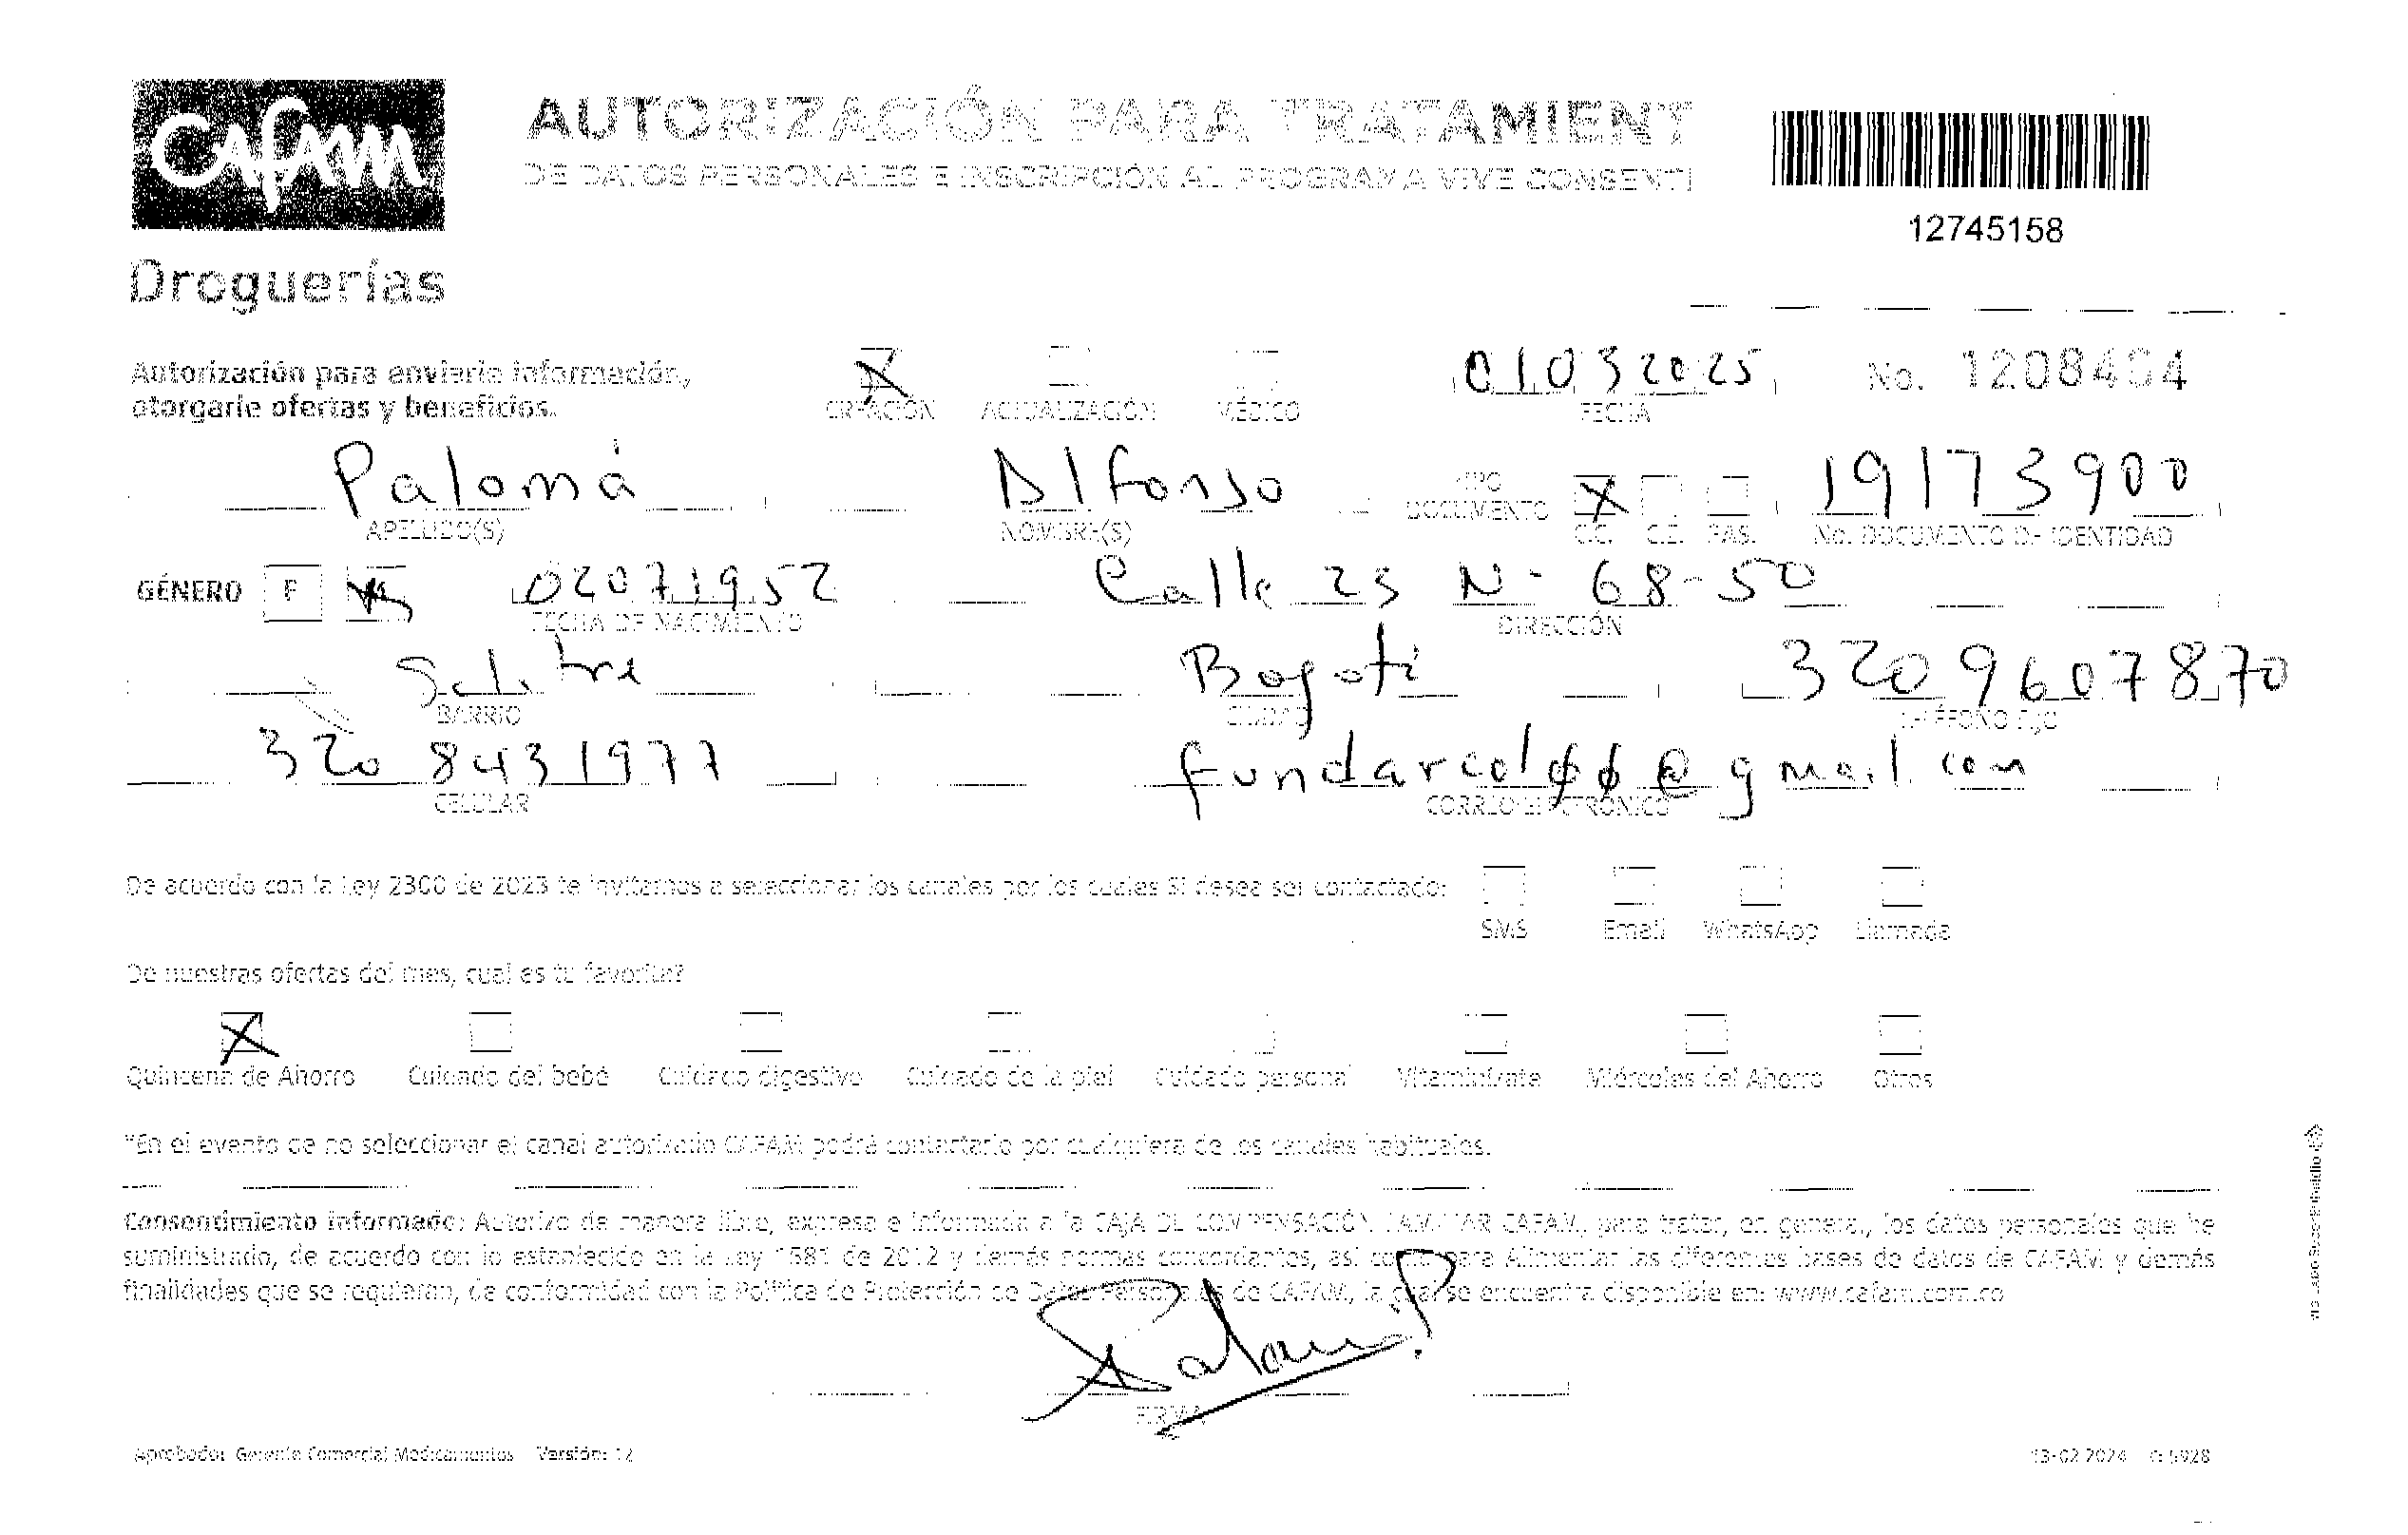 Cafam
AUTORIZACIÓN PARA TRATAMIENT
DE DATOS PERSONALES E INSCRIPCIÓN AL PROGRAMA VIVE CONSENTI
12745158
Droguerías
Autorización para enviarle información,
otorgarle ofertas y beneficios.
CREACIÓN ACTUALIZACIÓN MÉDICO
01032025
FECHA
No. 1208404
Palomá
APELLIDO(S)
Alfonso
NOMBRE(S)
TIPO DOCUMENTO
C.C. C.E. PAS.
19173900
No. DOCUMENTO DE IDENTIDAD
GÉNERO F M
02071952
FECHA DE NACIMIENTO
Calle 23 N- 68-50
DIRECCIÓN
Salitre
BARRIO
Bogotá
CIUDAD
3209607870
TELÉFONO FIJO
320 8431977
CELULAR
fundarcol00@gmail.com
CORREO ELECTRÓNICO
De acuerdo con la Ley 2300 de 2023 te invitamos a seleccionar los canales por los cuales SI desea ser contactado:
SMS Email WhatsApp Llamada
De nuestras ofertas del mes, cual es tu favorita?
Quincena de Ahorro Cuidado del bebé Cuidado digestivo Cuidado de la piel Cuidado personal Vitamínate Miércoles del Ahorro Otros
*En el evento de no seleccionar el canal autorizado CAFAM podrá contactarlo por cualquiera de los canales habituales.
Consentimiento informado: Autorizo de manera libre, expresa e informada a la CAJA DE COMPENSACIÓN FAMILIAR CAFAM, para tratar, en general, los datos personales que he
suministrado, de acuerdo con lo establecido en la Ley 1581 de 2012 y demás normas concordantes, así como para Alimentar las diferentes bases de datos de CAFAM y demás
finalidades que se requieran, de conformidad con la Política de Protección de Datos Personales de CAFAM, la cual se encuentra disponible en: www.cafam.com.co
FIRMA
Aprobado: Gerente Comercial Medicamentos Versión: 12
13-02 2024